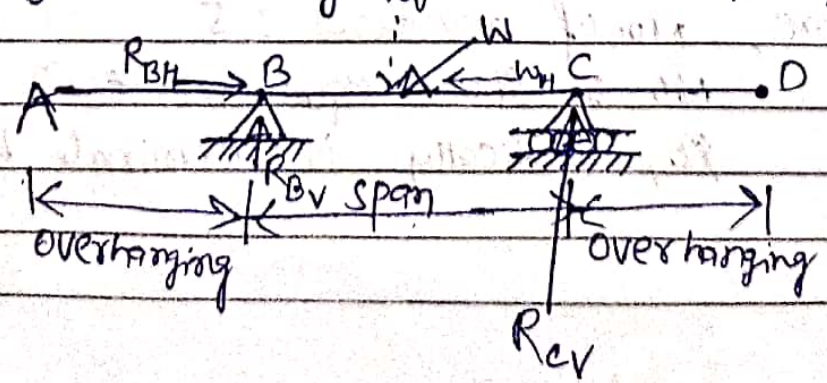 W
A R_BH B W_H C D
R_BV span
overhanging overhanging
R_CV